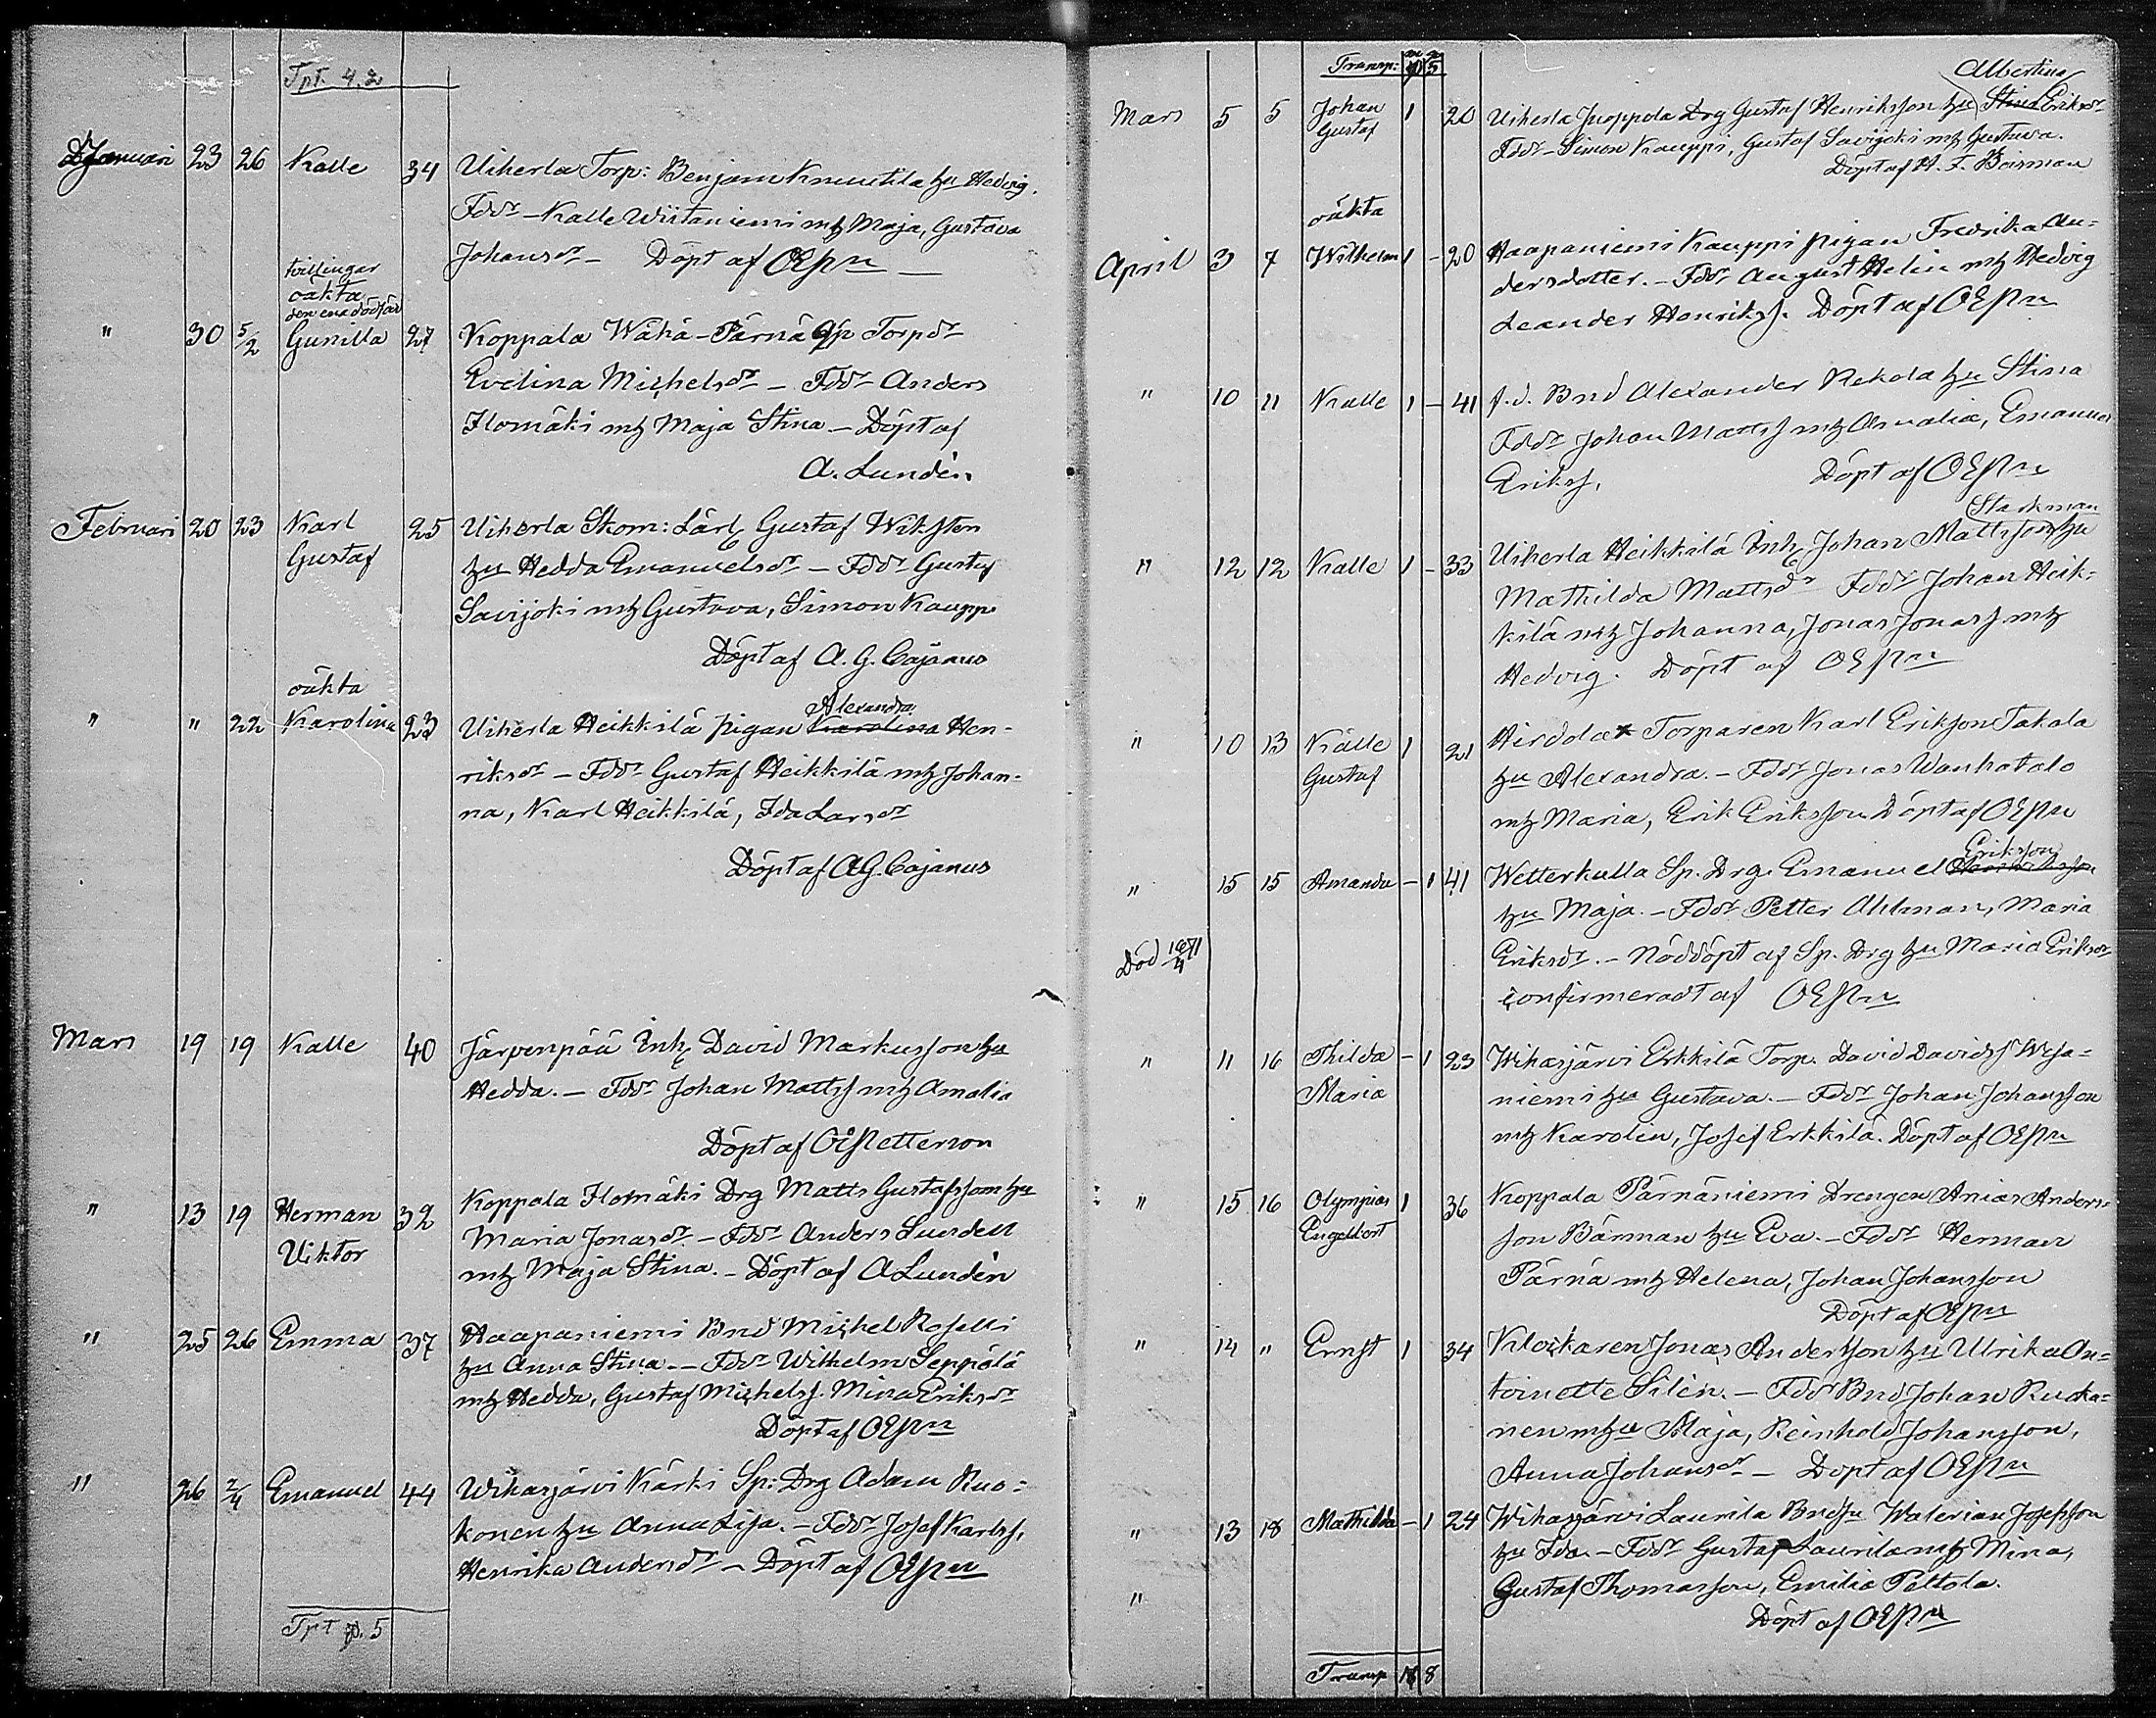 Tpt. 4. 2
Januari 23 26 Kalle 34 Uiherla Torp: Benjam Knuutila hu Hedvig.
Fddr – Kalle Wiitaniemi m hu Maja, Gustava
Johansdr – Döpt af OEPn
tvillingar
oäkta
den ena dödfödd
" 30 5/2 Gunilla 27 Koppala Wähä-Pärnä Torpdr
Evelina Michelsdr – Fddr Anders
Ilomäki m hu Maja Stina – Döpt af
A. Lundén
Februari 20 23 Karl 25 Uiherla Skom: Lärl. Gustaf Wiksten
Gustaf hu Hedda Emanuelsdr – Fddr Gustaf
Savijoki m hu Gustava, Simon Kauppi
Döpt af A. G. Cajanus
oäkta
Alexandra
" " 22 Karolina 23 Uiherla Heikkilä pigan Karolina Hen-
riksdr – Fddr Gustaf Heikkilä m hu Johan-
na, Karl Heikkilä, Ida Larsdr
Döpt af A G. Cajanus
Mars 19 19 Kalle 40 Järvenpää Inh. David Markusson hu
Hedda. – Fddr Johan Mattss m hu Amalia
Döpt af OEPetterson
" 13 19 Herman 32 Koppala Ilomäki Drg Matts Gustafsson hu
Viktor Maria Jonasdr – Fddr Anders Lundell
m hu Maja Stina. – Döpt af A Lundén
" 25 26 Emma 37 Haapaniemi Bnd Michel Roselli
hu Anna Stina. – Fddr Wilhelm Seppälä
m hu Hedda, Gustaf Michelss. Mina Eriksdr
Döpt af OEPn
" 26 2/4 Emanuel 44 Wihasjärvi Kärki Sp. Drg Adam Ruo-
konen hu Anna Lisa. – Fddr Josef Karlss,
Henrika Andersdr – Döpt af OEPn
Tpt 5
Transp: 5
Albertina
Mars 5 5 Johan 1 20 Uiherla Juoppola Drg Gustaf Henriksson hu Stina Eriksdr
Gustaf Fddr – Simon Kauppi, Gustaf Savijoki m hu Gustava.
Döpt af H. F. Boisman
oäkta
April 3 7 Wilhelm 1 – 20 Haapaniemi Kauppi pigan Fredrika An-
dersdotter. – Fddr August Helin m hu Hedvig
Leander Henrikss. Döpt af OEPn
" 10 11 Kalle 1 – 41 f.d. Bnd Alexander Rekola hu Stina
Fddr Johan Mattss m hu Amalia, Emanuel
Erikss, Döpt af OEPn
Starkman
" 12 12 Kalle 1 – 33 Uiherla Heikkilä Inh. Johan Mattsson hu
Mathilda Mattsdr Fddr Johan Heik-
kilä m hu Johanna, Jonas Jonass m hu
Hedvig. Döpt af OEPn
" 10 13 Kalle 1 21 Hirdola Torparen Karl Erikson Takala
Gustaf hu Alexandra. – Fddr Jonas Wanhatalo
m hu Maria, Erik Eriksson Döpt af OEPn
Eriksson
" 15 15 Amanda – 1 41 Wetterkulla Sp. Drg. Emanuel
hu Maja. – Fddr Petter Ahlman, Maria
Död 16/4 71 Eriksdr. – Nöddöpt af Sp. Drg hu Maria Eriksdr
confirmeradt af OEPn
" 11 16 Thilda – 1 23 Wihasjärvi Erkkilä Torp. David Davidss Weja-
Maria niemi hu Gustava. – Fddr Johan Johansson
m hu Karolin, Josef Erkkilä. Döpt af OEPn
" 15 16 Olympias 1 36 Koppala Pärnäniemi Drengen Anias Anders-
Engelbert son Bärman hu Eva. – Fddr Herman
Pärnä m hu Helena, Johan Johansson
Döpt af OEPn
" 14 " Ernst 1 34 Klockaren Jonas Andersson hu Ulrika An-
toinette Silén. – Fddr Bnd Johan Ruoka-
nen m hu Maja, Reinhold Johansson,
Anna Johansdr – Döpt af OEPn
" 13 18 Mathilda – 1 24 Wihasjärvi Laurila Bndsn Walerian Josefsson
hu Ida. – Fddr Gustaf Laurila m hu Mina,
" Gustaf Thomasson, Emilia Peltola.
Döpt af OEPn
Transp 8